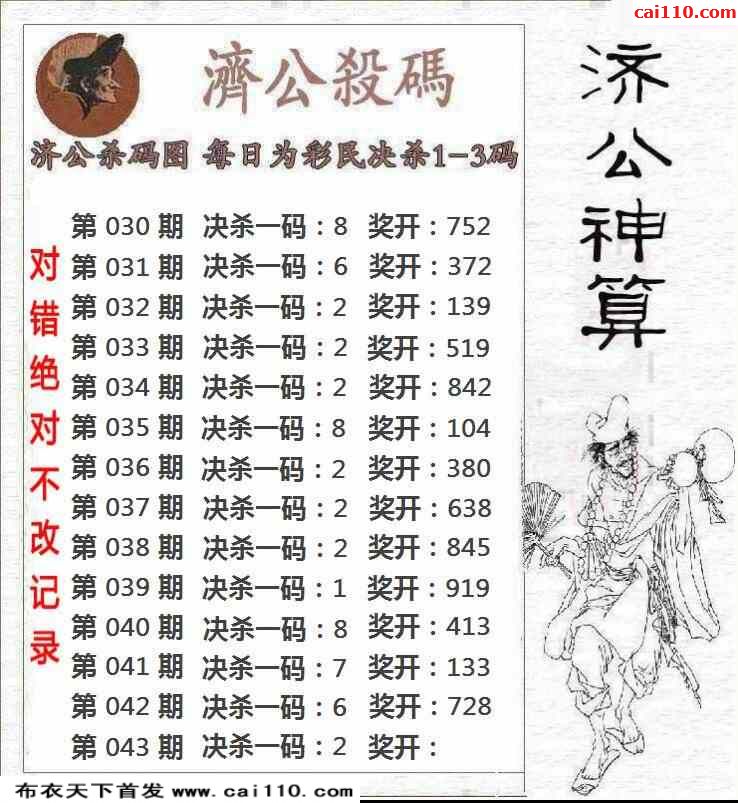 cai110.com
濟公殺碼
济公杀码图 每日为彩民决杀1-3码
济公神算
对错绝对不改记录
第 030 期 决杀一码:8 奖开:752
第 031 期 决杀一码:6 奖开:372
第 032 期 决杀一码:2 奖开:139
第 033 期 决杀一码:2 奖开:519
第 034 期 决杀一码:2 奖开:842
第 035 期 决杀一码:8 奖开:104
第 036 期 决杀一码:2 奖开:380
第 037 期 决杀一码:2 奖开:638
第 038 期 决杀一码:2 奖开:845
第 039 期 决杀一码:1 奖开:919
第 040 期 决杀一码:8 奖开:413
第 041 期 决杀一码:7 奖开:133
第 042 期 决杀一码:6 奖开:728
第 043 期 决杀一码:2 奖开:
布衣天下首发 www.cai110.com